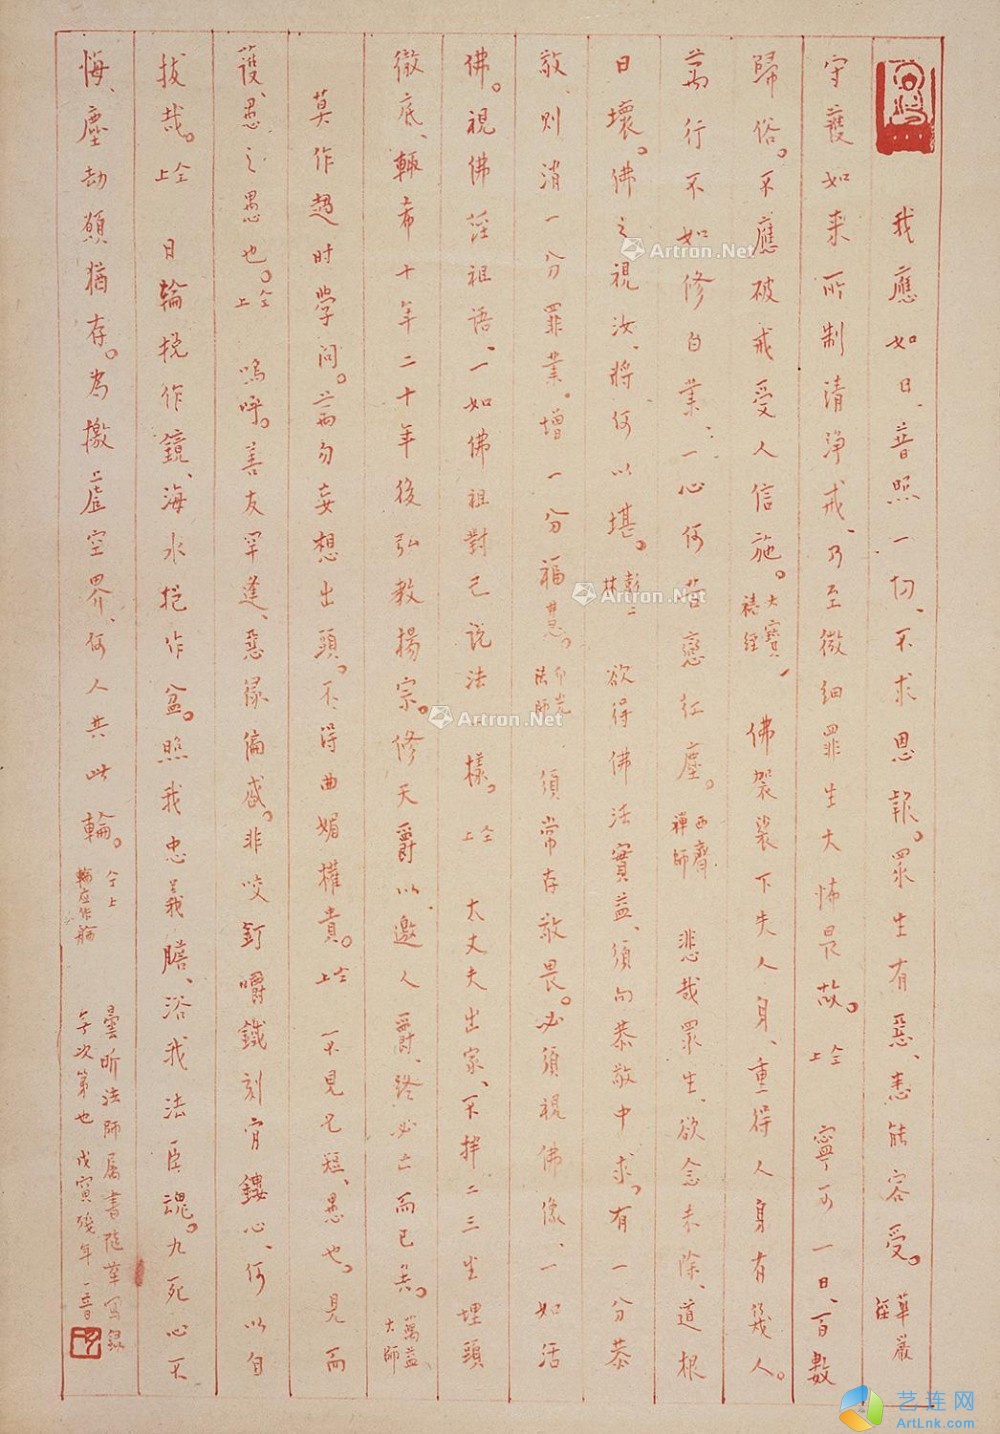 我應如日、普照一切、不求恩報。眾生有惡、悉能容受。華嚴經
守護如來所制清淨戒、乃至微細罪生大怖畏故。仝上 寧可一日、百數
歸俗。不應破戒受人信施。大寶積經 佛袈裟下失人身、重得人身有幾人。
萬行不如修白業、一心何苦戀紅塵。西齋禪師 悲哉眾生、欲念未除、道根
日壞。佛之視汝、將何以堪。彭二林 欲得佛法實益、須向恭敬中求。有一分恭
敬、則消一分罪業。增一分福慧。印光法師 須常存敬畏。必須視佛像、一如活
佛。視佛經祖語、一如佛祖對己說法 樣。仝上 大丈夫出家、不拌二三坐埋頭
徹底、輒希十年二十年後弘教揚宗。修天爵以邀人爵、終必亡而已矣。蕅益大師
莫作趨时学问。並勿妄想出頭。不得曲媚權貴。仝上 不見己短、愚也。見而
護、愚之愚也。仝上 嗚呼。善友罕逢、惡缘偏盛。非咬釘嚼鐵刻骨鏤心、何以自
拔哉。仝上 日輪挽作鏡、海水挹作盆。照我忠義膽、浴我法臣魂。九死心不
悔、塵劫願猶存。為檄虛空界、何人共此輪。仝上 輪应作論
曇昕法師属書随筆写録
無次第也 戊寅殘年一音
Artron.Net
Artron.Net
Artron.Net
艺连网
ArtLnk.com